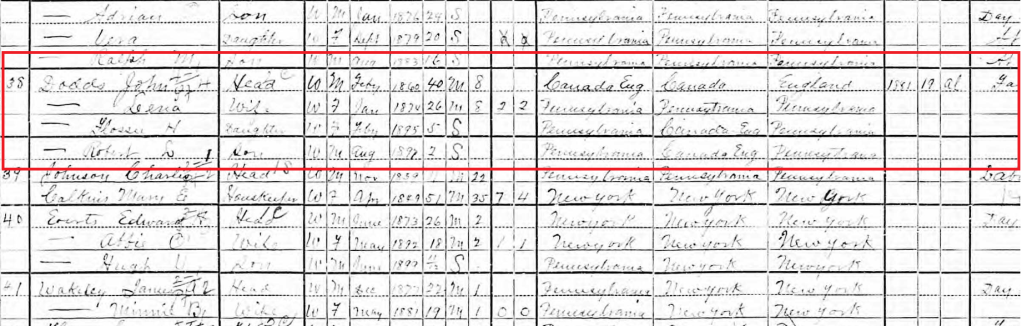 — Adrian Son W M Jan 1876 24 S Pennsylvania Pennsylvania Pennsylvania Day
— Daughter W F Sept 1879 20 S Pennsylvania Pennsylvania Pennsylvania
— Ralph M Son W M Aug 1883 16 S Pennsylvania Pennsylvania Pennsylvania At
38 Dodds John H Head W M Feby 1860 40 M 8 Canada Eng Canada England 1881 19 Al Fa
— Lena Wife W F Jan 1874 26 M 8 2 2 Pennsylvania Pennsylvania Pennsylvania
— H Daughter W F Feby 1895 5 S Pennsylvania Canada Eng Pennsylvania
— Robert L Son W M Aug 1897 2 S Pennsylvania Canada Eng Pennsylvania
39 Johnson Charlie Head W M Nov 22 Pennsylvania Pennsylvania Pennsylvania
Calkins Mary E Housekeeper W F Apr 1849 51 M 35 7 4 New York New York New York
40 Everts Edward Head W M June 1873 26 M 2 New York New York New York Day
— Attie Wife W F May 1882 18 M 2 1 1 New York New York New York
— Hugh Son W M June 1899 S Pennsylvania New York New York
41 Wakeley James Head W M Dec 1877 22 M 1 Pennsylvania New York New York Day
— Minnie B Wife W F May 1881 19 M 1 0 0 Pennsylvania New York Pennsylvania